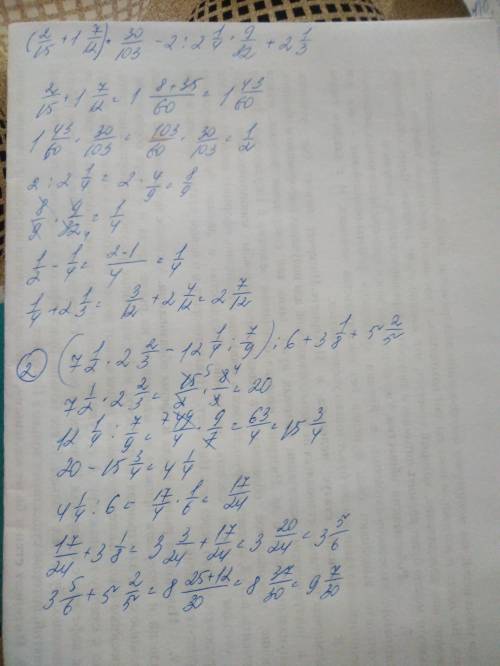 (2/15 + 1 7/12) · 30/103 - 2 : 2 1/4 · 9/32 + 2 1/3
2/15 + 1 7/12 = 1 (8+35)/60 = 1 43/60
1 43/60 · 30/103 = 103/60 · 30/103 = 1/2
2 : 2 1/4 = 2 · 4/9 = 8/9
8/9 · 9/32 4 = 1/4
1/2 - 1/4 = (2-1)/4 = 1/4
1/4 + 2 1/3 = 3/12 + 2 4/12 = 2 7/12
2) (7 1/2 · 2 2/3 - 12 1/4 : 7/9) : 6 + 3 1/8 + 5 2/5
7 1/2 · 2 2/3 = 15 5/2 · 8 4/3 = 20
12 1/4 : 7/9 = 7 49/4 · 9/7 = 63/4 = 15 3/4
20 - 15 3/4 = 4 1/4
4 1/4 : 6 = 17/4 · 1/6 = 17/24
17/24 + 3 1/8 = 3 3/24 + 17/24 = 3 20/24 = 3 5/6
3 5/6 + 5 2/5 = 8 (25+12)/30 = 8 37/30 = 9 7/30